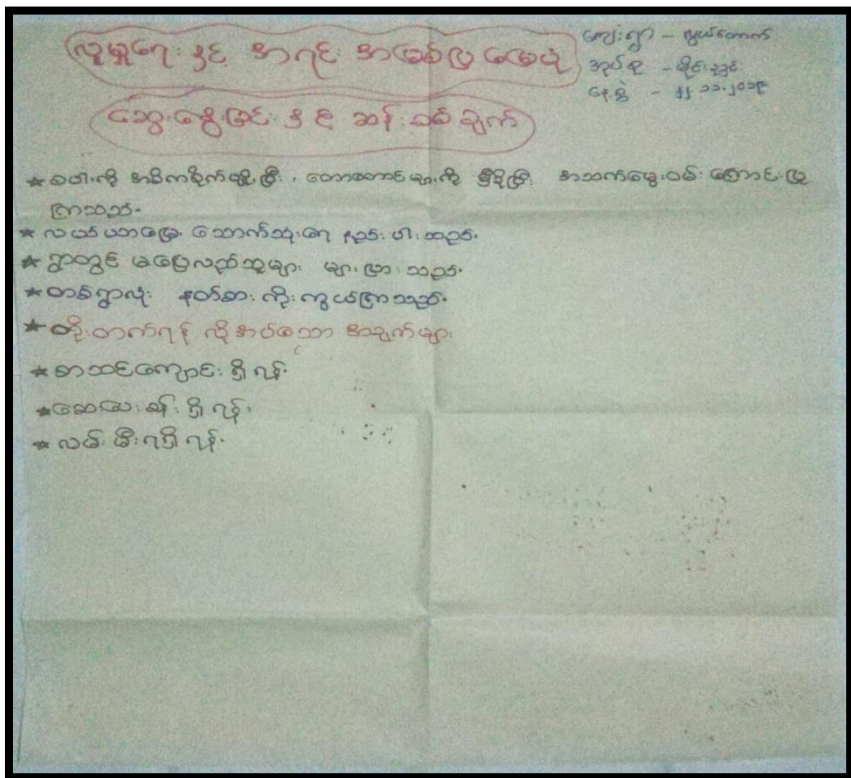 လူမှုရေး နှင့် အရင်း အမြစ်ပြ မြေပုံ
ကျေးရွာ – လွယ်တောက်
အုပ်စု – ခိုင်းညွင်း
နေ့စွဲ – ၂၂.၁၁.၂၀၁၉
ဆွေးနွေးခြင်း နှင့် ဆန်းစစ် ချက်
* စပါးကို အဓိကစိုက်ပျိုးပြီး၊ တောတောင်များကို မှီခိုပြီး အသက်မွေးဝမ်း ကြောင်းပြု
ကြသည်။
* လယ်ယာမြေ သောက်သုံးရေ နည်းပါးသည်။
* ရွာတွင် မပြေလည်သူများ များပြားသည်။
* တစ်ရွာလုံး နတ်စား ကိုးကွယ်ကြသည်။
* တိုးတက်ရန် လိုအပ်သော အချက်များ
* စာသင်ကျောင်း ရှိရန်။
* ဆေးပေးခန်း ရှိရန်။
* လမ်း မီးရရှိရန်။